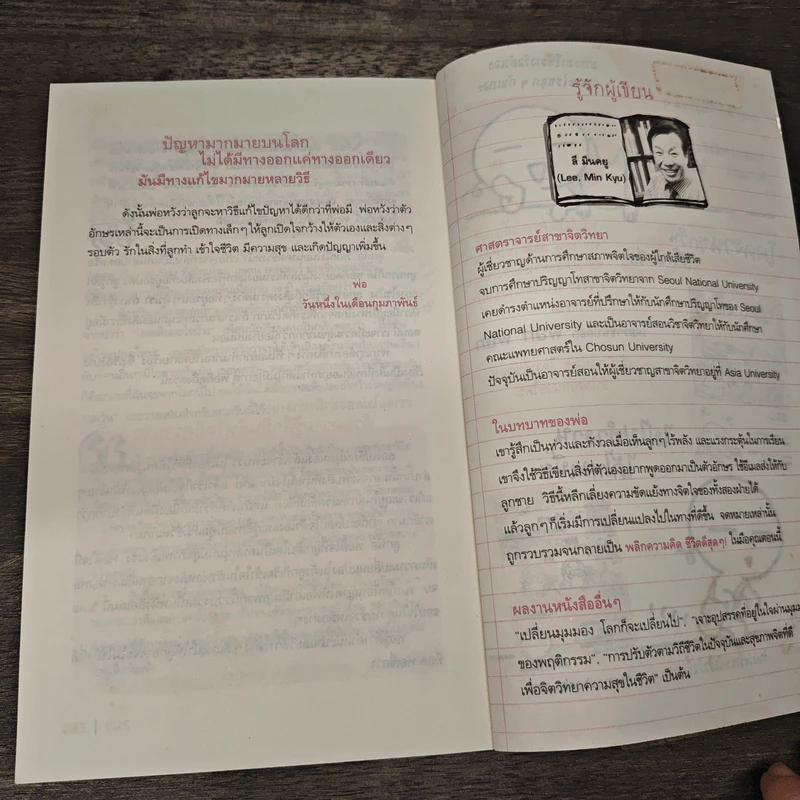 ปัญหามากมายบนโลก
ไม่ได้มีทางออกแค่ทางออกเดียว
มันมีทางแก้ไขมากมายหลายวิธี
ดังนั้นพ่อหวังว่าลูกจะหาวิธีแก้ไขปัญหาได้ดีกว่าที่พ่อมี พ่อหวังว่าตัว
อักษรเหล่านี้จะเป็นการเปิดทางเล็กๆ ให้ลูกเปิดใจกว้างให้ตัวเองและสิ่งต่างๆ
รอบตัว รักในสิ่งที่ลูกทำ เข้าใจชีวิต มีความสุข และเกิดปัญญาเพิ่มขึ้น
พ่อ
วันหนึ่งในเดือนกุมภาพันธ์
รู้จักผู้เขียน
ลี มินคยู
(Lee, Min Kyu)
ศาสตราจารย์สาขาจิตวิทยา
ผู้เชี่ยวชาญด้านการศึกษาสภาพจิตใจของผู้ใกล้เสียชีวิต
จบการศึกษาปริญญาโทสาขาจิตวิทยาจาก Seoul National University
เคยดำรงตำแหน่งอาจารย์ที่ปรึกษาให้กับนักศึกษาปริญญาโทของ Seoul
National University และเป็นอาจารย์สอนวิชาจิตวิทยาให้กับนักศึกษา
คณะแพทยศาสตร์ใน Chosun University
ปัจจุบันเป็นอาจารย์สอนให้ผู้เชี่ยวชาญสาขาจิตวิทยาอยู่ที่ Asia University
ในบทบาทของพ่อ
เขารู้สึกเป็นห่วงและกังวลเมื่อเห็นลูกๆ ไร้พลัง และแรงกระตุ้นในการเรียน
เขาจึงใช้วิธีเขียนสิ่งที่ตัวเองอยากพูดออกมาเป็นตัวอักษร ใช้อีเมลส่งให้กับ
ลูกชาย วิธีนี้หลีกเลี่ยงความขัดแย้งทางจิตใจของทั้งสองฝ่ายได้
แล้วลูกๆ ก็เริ่มมีการเปลี่ยนแปลงไปในทางที่ดีขึ้น จดหมายเหล่านั้น
ถูกรวบรวมจนกลายเป็น พลิกความคิด ชีวิตดีสุดๆ! ในมือคุณตอนนี้
ผลงานหนังสืออื่นๆ
"เปลี่ยนมุมมอง โลกก็จะเปลี่ยนไป", "เจาะอุปสรรคที่อยู่ในใจผ่านมุมมอง
ของพฤติกรรม", "การปรับตัวตามวิถีชีวิตในปัจจุบันและสุขภาพจิตที่ดี
เพื่อจิตวิทยาความสุขในชีวิต" เป็นต้น